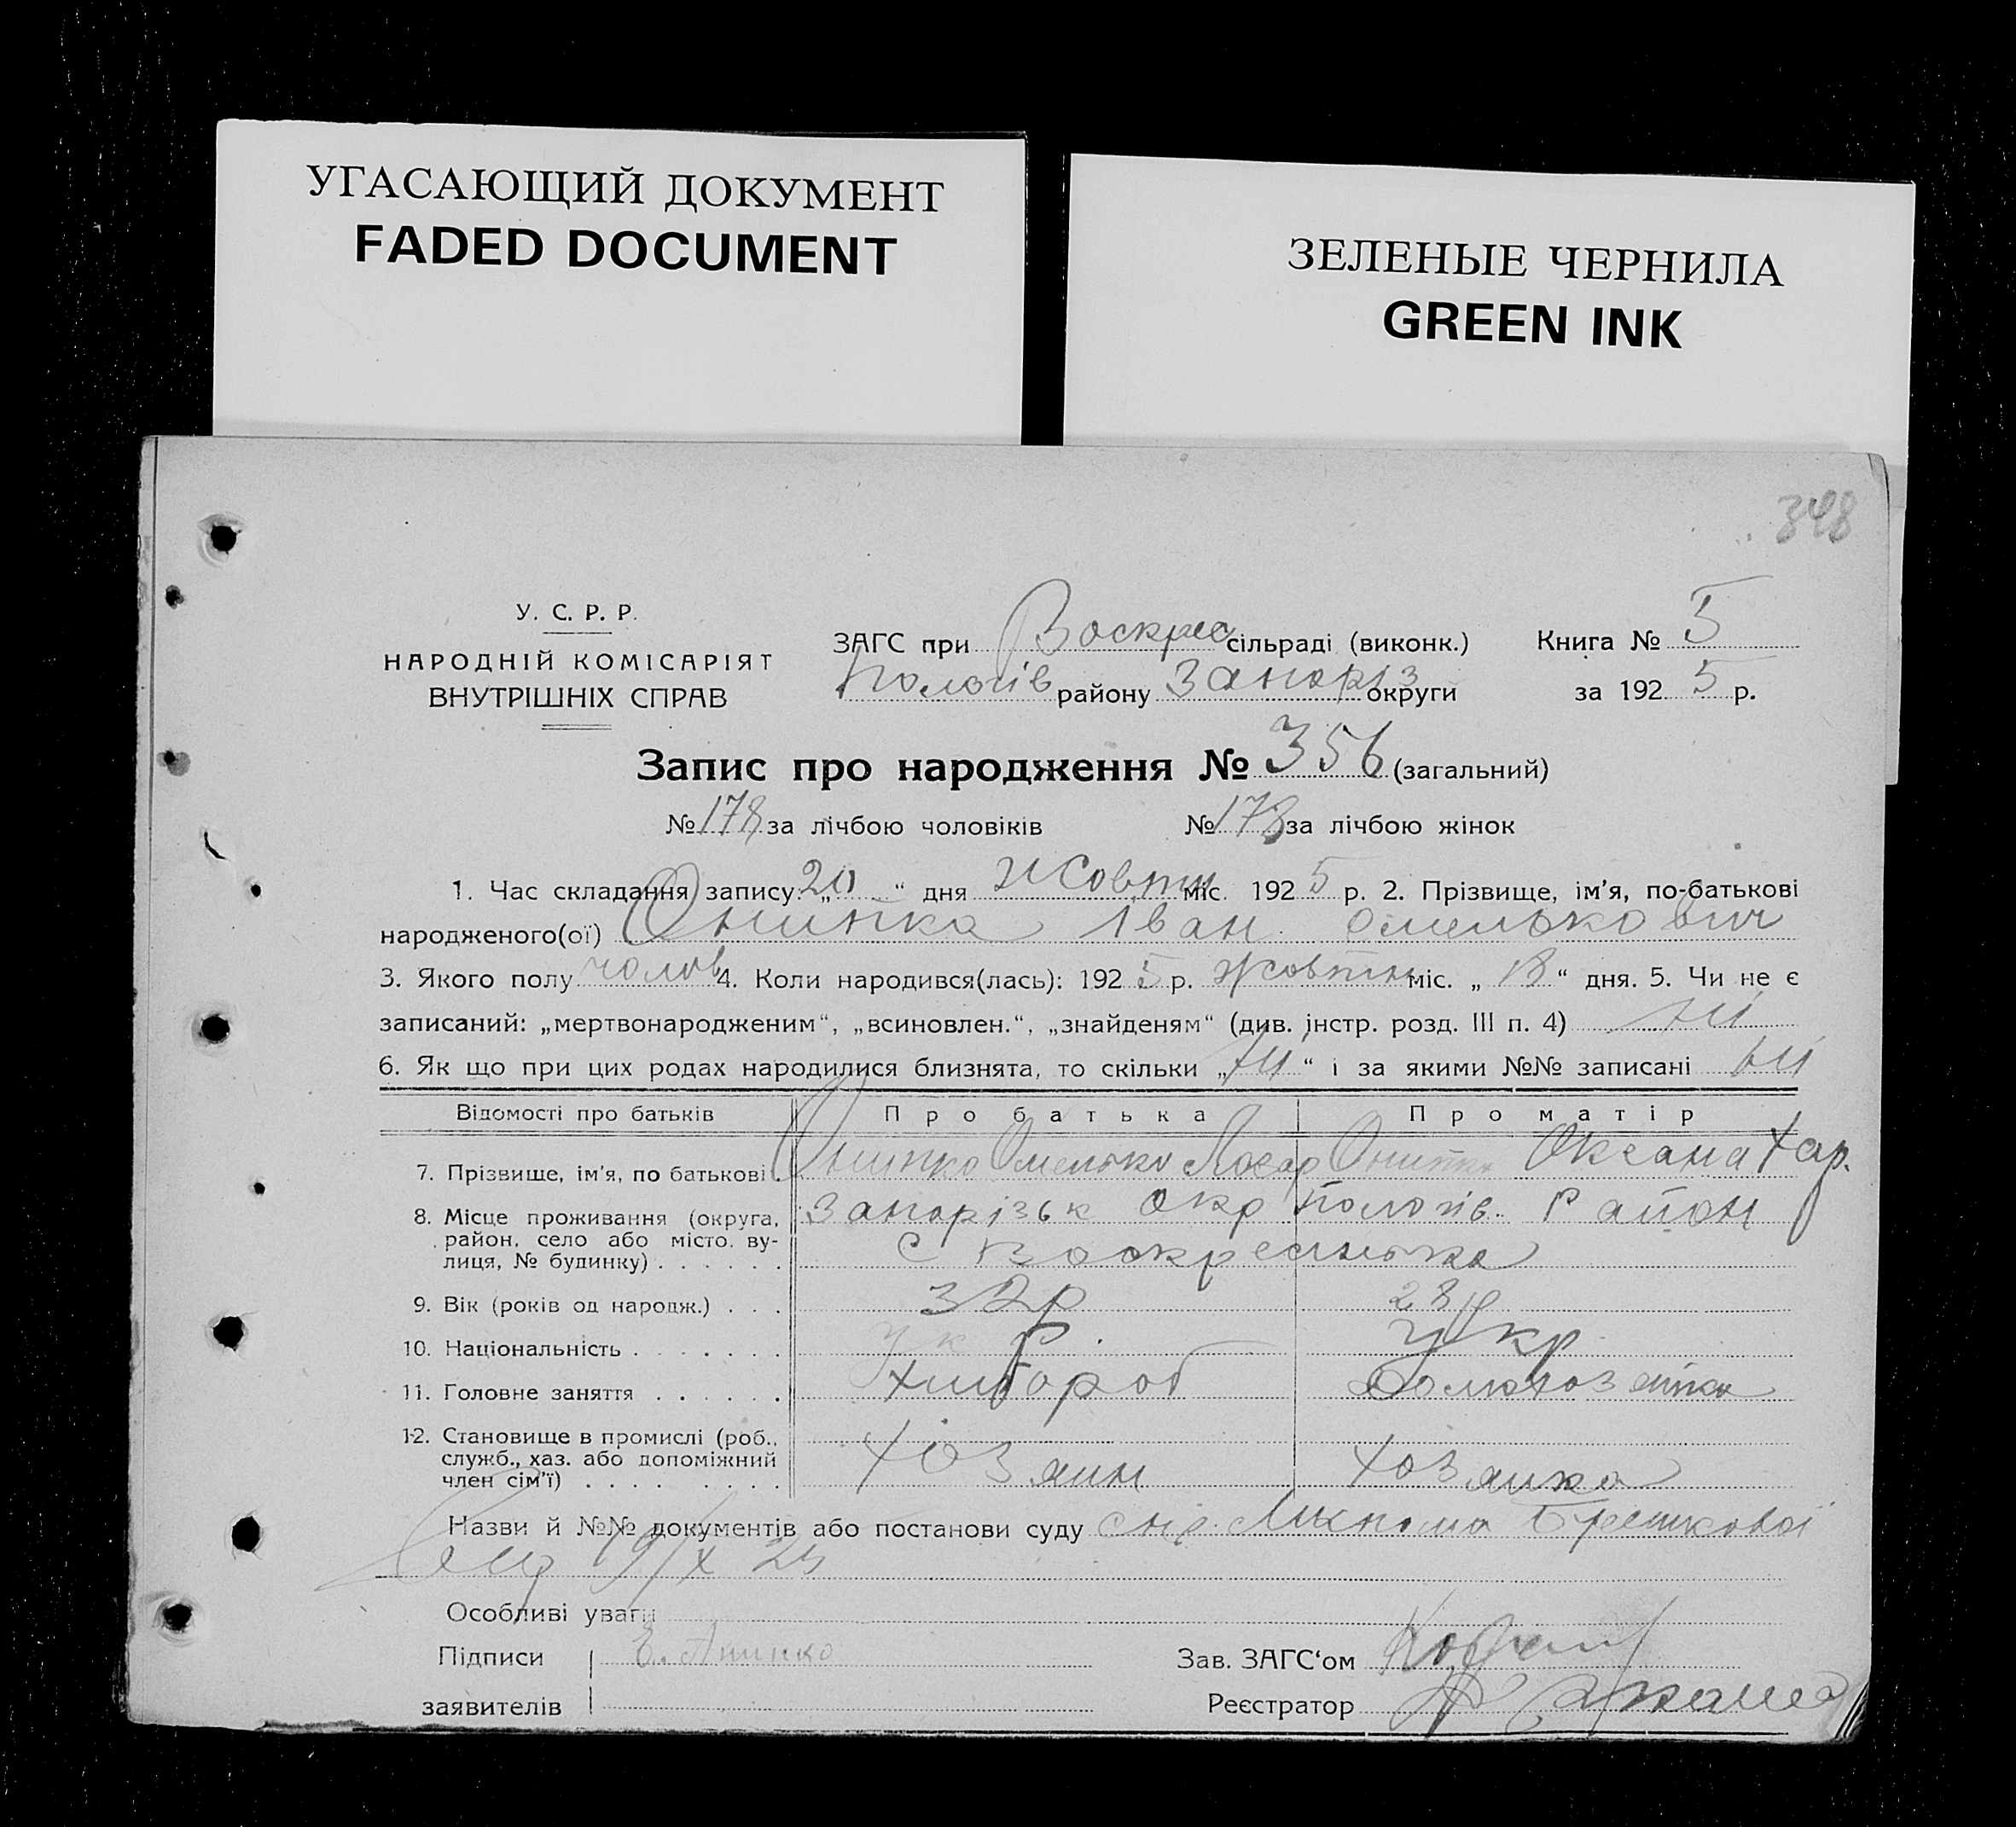 УГАСАЮЩИЙ ДОКУМЕНТ
FADED DOCUMENT
ЗЕЛЕНЫЕ ЧЕРНИЛА
GREEN INK
348
У. С. Р. Р.
НАРОДНІЙ КОМІСАРІЯТ
ВНУТРІШНІХ СПРАВ
ЗАГС при Воскрес сільраді (виконк.)
Пологів району Запоріз округи
Книга № 5
за 1925 р.
Запис про народження № 356 (загальний)
№ 178 за лічбою чоловіків № 178 за лічбою жінок
1. Час складання запису: „20“ дня Жовтн міс. 1925 р. 2. Прізвище, ім'я, по-батькові
народженого(ої) Онипка Іван Омелькович
3. Якого полу чолов 4. Коли народився(лась): 1925 р. Жовтня міс. „18“ дня. 5. Чи не є
записаний: „мертвонародженим“, „всиновлен.“, „знайденям“ (див. інстр. розд. III п. 4) ні
6. Як що при цих родах народилися близнята, то скільки „ні“ і за якими №№ записані ні
Відомості про батьків Про батька Про матір
7. Прізвище, ім'я, по батькові. Онипко Омелько Онипко Оксана Хар.
8. Місце проживання (округа, район, село або місто, вулиця, № будинку) Запорізьк Окр Пологів Район
с Воскресинька
9. Вік (років од народж.) 32р 28р
10. Національність укр. укр
11. Головне заняття Хлібороб Домохозяйка
12. Становище в промислі (роб., служб., хаз. або допоміжний член сім'ї) Хозяин Хозяйка
Назви й №№ документів або постанови суду
19/X 25
Особливі уваги
Підписи
заявителів
Зав. ЗАГС'ом
Реєстратор